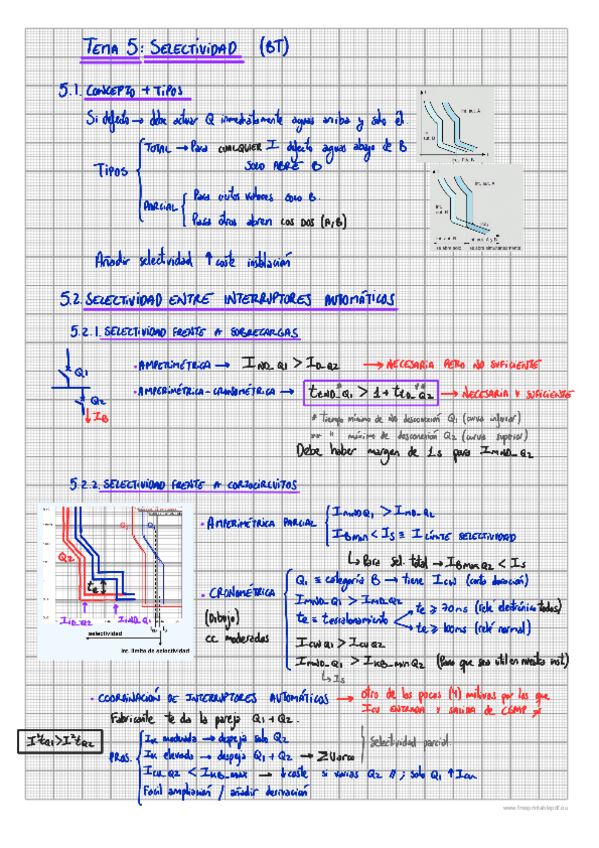 TEMA 5: SELECTIVIDAD (BT)
5.1. CONCEPTO + TIPOS
Si defecto → debe actuar Q inmediatamente aguas arriba y solo él.
TIPOS
TOTAL → Para CUALQUIER I defecto aguas abajo de B
SOLO ABRE B
PARCIAL
Para ciertos valores solo B.
Para otros abren LOS DOS (A,B)
Añadir selectividad ↑ coste instalación
5.2. SELECTIVIDAD ENTRE INTERRUPTORES AUTOMÁTICOS
5.2.1. SELECTIVIDAD FRENTE A SOBRECARGAS
Q1
Q2
IB
· AMPERIMÉTRICA → IND_Q1 > ID_Q2 → NECESARIA PERO NO SUFICIENTE
· AMPERIMÉTRICA-CRONOMÉTRICA → tIND_Q1* > 1 + tID_Q2** → NECESARIA Y SUFICIENTE
* Tiempo mínimo de no desconexión Q1 (curva inferior)
** " máximo de desconexión Q2 (curva superior)
Debe haber margen de 1s para IMND_Q2
5.2.2. SELECTIVIDAD FRENTE A CORTOCIRCUITOS
Q2
Q1
te
selectividad
Inc. límite de selectividad
· AMPERIMÉTRICA PARCIAL
ImND Q1 > ImD_Q2
IBmin < Is ≡ I LÍMITE SELECTIVIDAD
↳ Para sel. total → IBmax Q2 < Is
· CRONOMÉTRICA
(Dibujo)
cc moderados
Q1 ≡ categoría B → tiene Icw (corta duración)
ImND_Q1 > ImD_Q2
te = t escalonamiento
te ≥ 70ms (relé electrónico todos)
te ≥ 100ms (relé normal)
ICW Q1 > ICU Q2
ImND_Q1 > IKB_min Q2 (Para que sea útil en nuestra inst)
↳ Is
· COORDINACIÓN DE INTERRUPTORES AUTOMÁTICOS → otro de los pocos (4) motivos por los que
ICU ENTRADA Y SALIDA DE CGMP ≠
Fabricante te da la pareja Q1 + Q2.
I²tQ1 > I²tQ2
PROS.
Ik moderada → despeja solo Q2
Ik elevada → despeja Q1 + Q2 → Σ Uarco
Selectividad parcial.
ICU_Q2 < IKB_max → ↓ coste si varios Q2 //; solo Q1 ↑ Icu
Fácil ampliación / añadir derivación